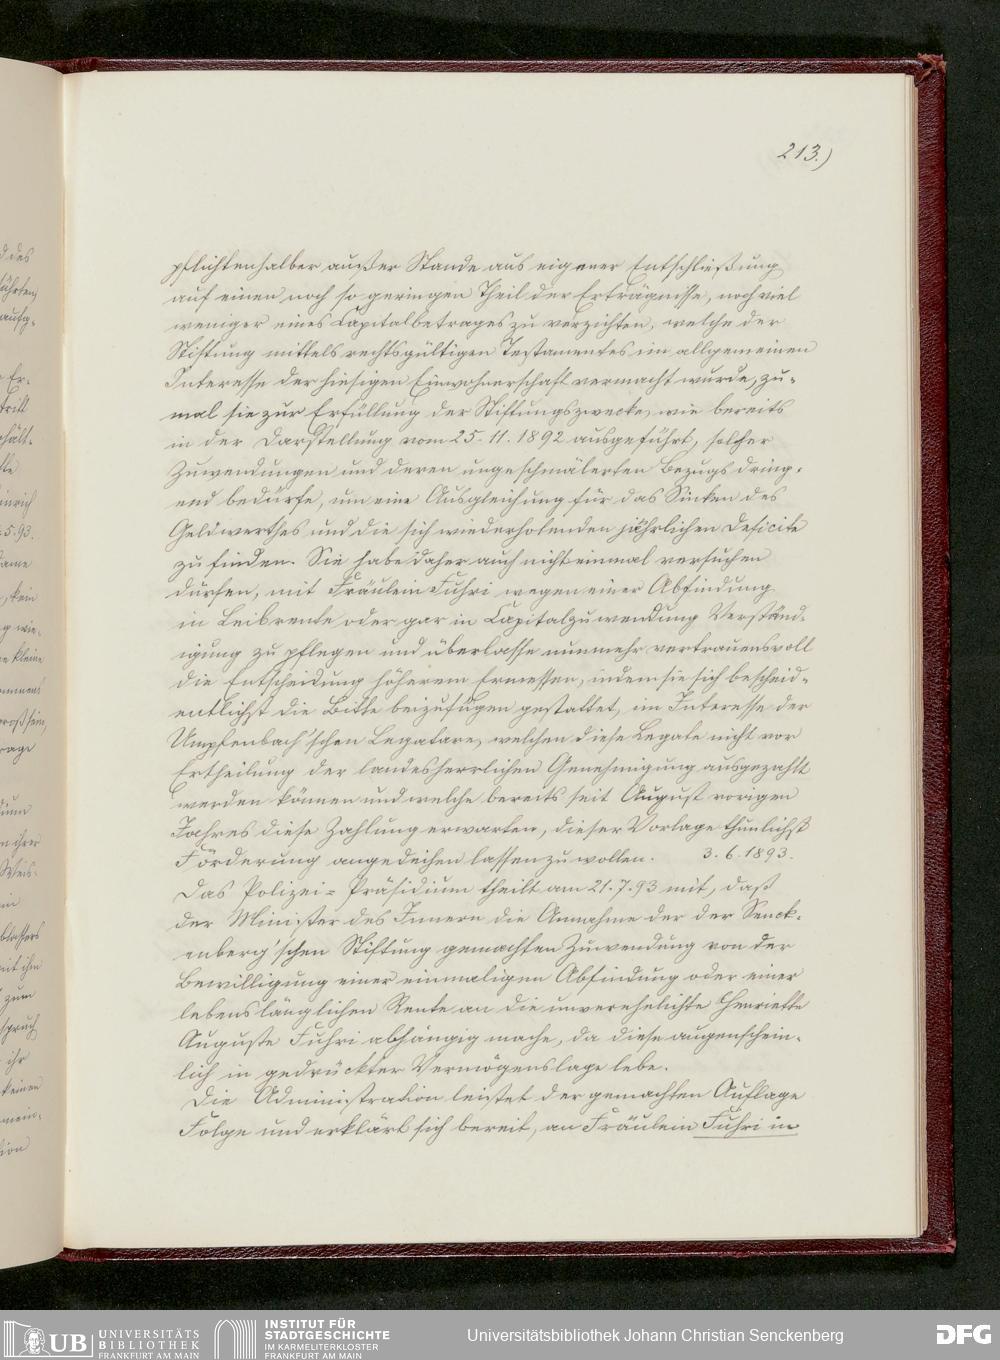 213.)
pflichtenhalber außer Stande aus eigener Entschließung
auf einen noch so geringen Theil der Erträgnisse, noch viel
weniger eines Capitalbetrages zu verzichten, welche der
Stiftung mittels rechtsgültigen Testamentes im allgemeinen
Interesse der hiesigen Einwohnerschaft vermacht wurde, zu-
mal sie zur Erfüllung der Stiftungszwecke, wie bereits
in der Darstellung vom 25. 11. 1892 ausgeführt, solcher
Zuwendungen und deren ungeschmälerten Bezugs dring-
end bedürfe, um eine Ausgleichung für das Sinken des
Geldwerthes und die sich wiederholenden jährlichen Deficite
zu finden. Sie habe daher auch nicht einmal versuchen
dürfen, mit Fräulein Fuhri wegen einer Abfindung
in Leibrente oder gar in Capitalzuwendung Verständ-
igung zu pflegen und überlasse nunmehr vertrauensvoll
die Entscheidung höherem Ermessen, indem sie sich bescheid-
entlichst die Bitte beizufügen gestattet, im Interesse der
Umpfenbach'schen Legatare, welchen diese Legate nicht vor
Ertheilung der landesherrlichen Genehmigung ausgezahlt
werden können und welche bereits seit August vorigen
Jahres diese Zahlung erwarten, dieser Vorlage thunlichst
Förderung angedeihen lassen zu wollen. 3. 6. 1893.
Das Polizei-Präsidium theilt am 21. 7. 93 mit, daß
der Minister des Innern die Annahme der der Senck-
enberg'schen Stiftung gemachten Zuwendung von der
Bewilligung einer einmaligen Abfindung oder einer
lebenslänglichen Rente an die unverehelichte Henriette
Auguste Fuhri abhängig mache, da diese augenschein-
lich in gedrückter Vermögenslage lebe.
Die Administration leistet der gemachten Auflage
Folge und erklärt sich bereit, an Fräulein Fuhri in
UB UNIVERSITÄTS
BIBLIOTHEK
FRANKFURT AM MAIN
INSTITUT FÜR
STADTGESCHICHTE
IM KARMELITERKLOSTER
FRANKFURT AM MAIN
Universitätsbibliothek Johann Christian Senckenberg
DFG